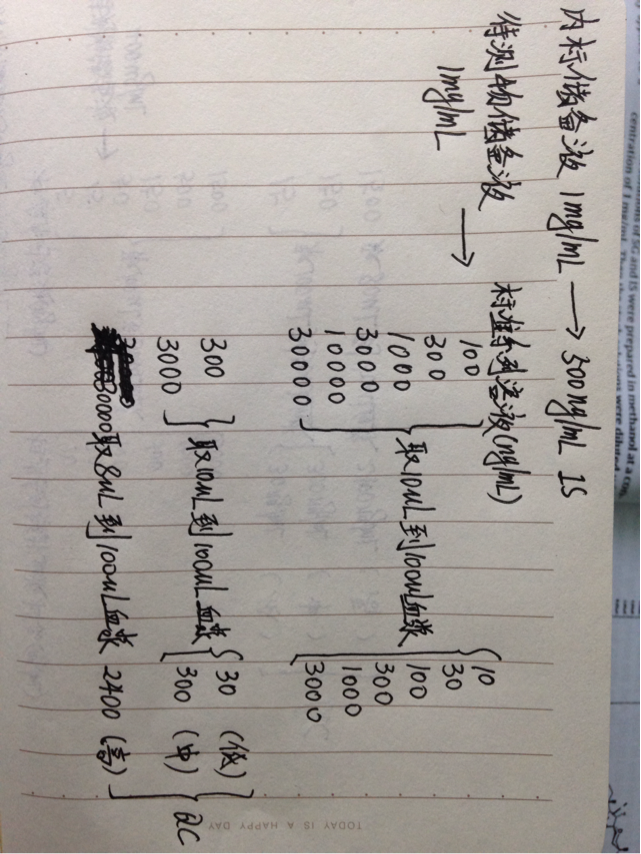 内标储备液 1mg/mL → 500ng/mL IS
待测物储备液 → 标准系列溶液(ng/mL)
1mg/mL
100
300
1000
3000
10000
30000
取10uL到100uL血浆
10
30
100
300
1000
3000
300
3000
取10uL到100uL血浆
30 (低)
300 (中)
30000取8uL到100uL血浆 2400 (高)
QC
TODAY IS A HAPPY DAY
and IS were prepared in methanol at a con-
centration of 1 mg/mL.
were diluted